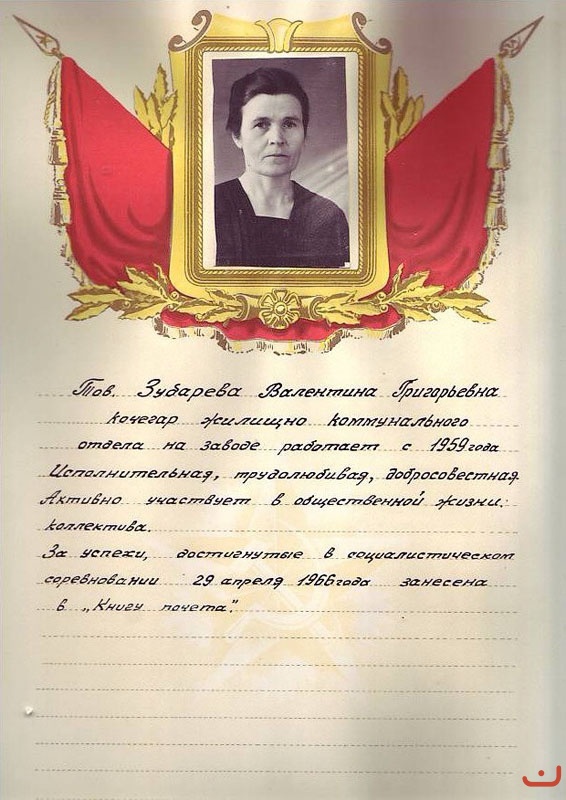 Тов. Зубарева Валентина Григорьевна
кочегар жилищно коммунального
отдела на заводе работает с 1959 года
Исполнительная, трудолюбивая, добросовестная.
Активно участвует в общественной жизни
коллектива.
За успехи, достигнутые в социалистическом
соревновании 29 апреля 1966 года занесена
в „Книгу почета".